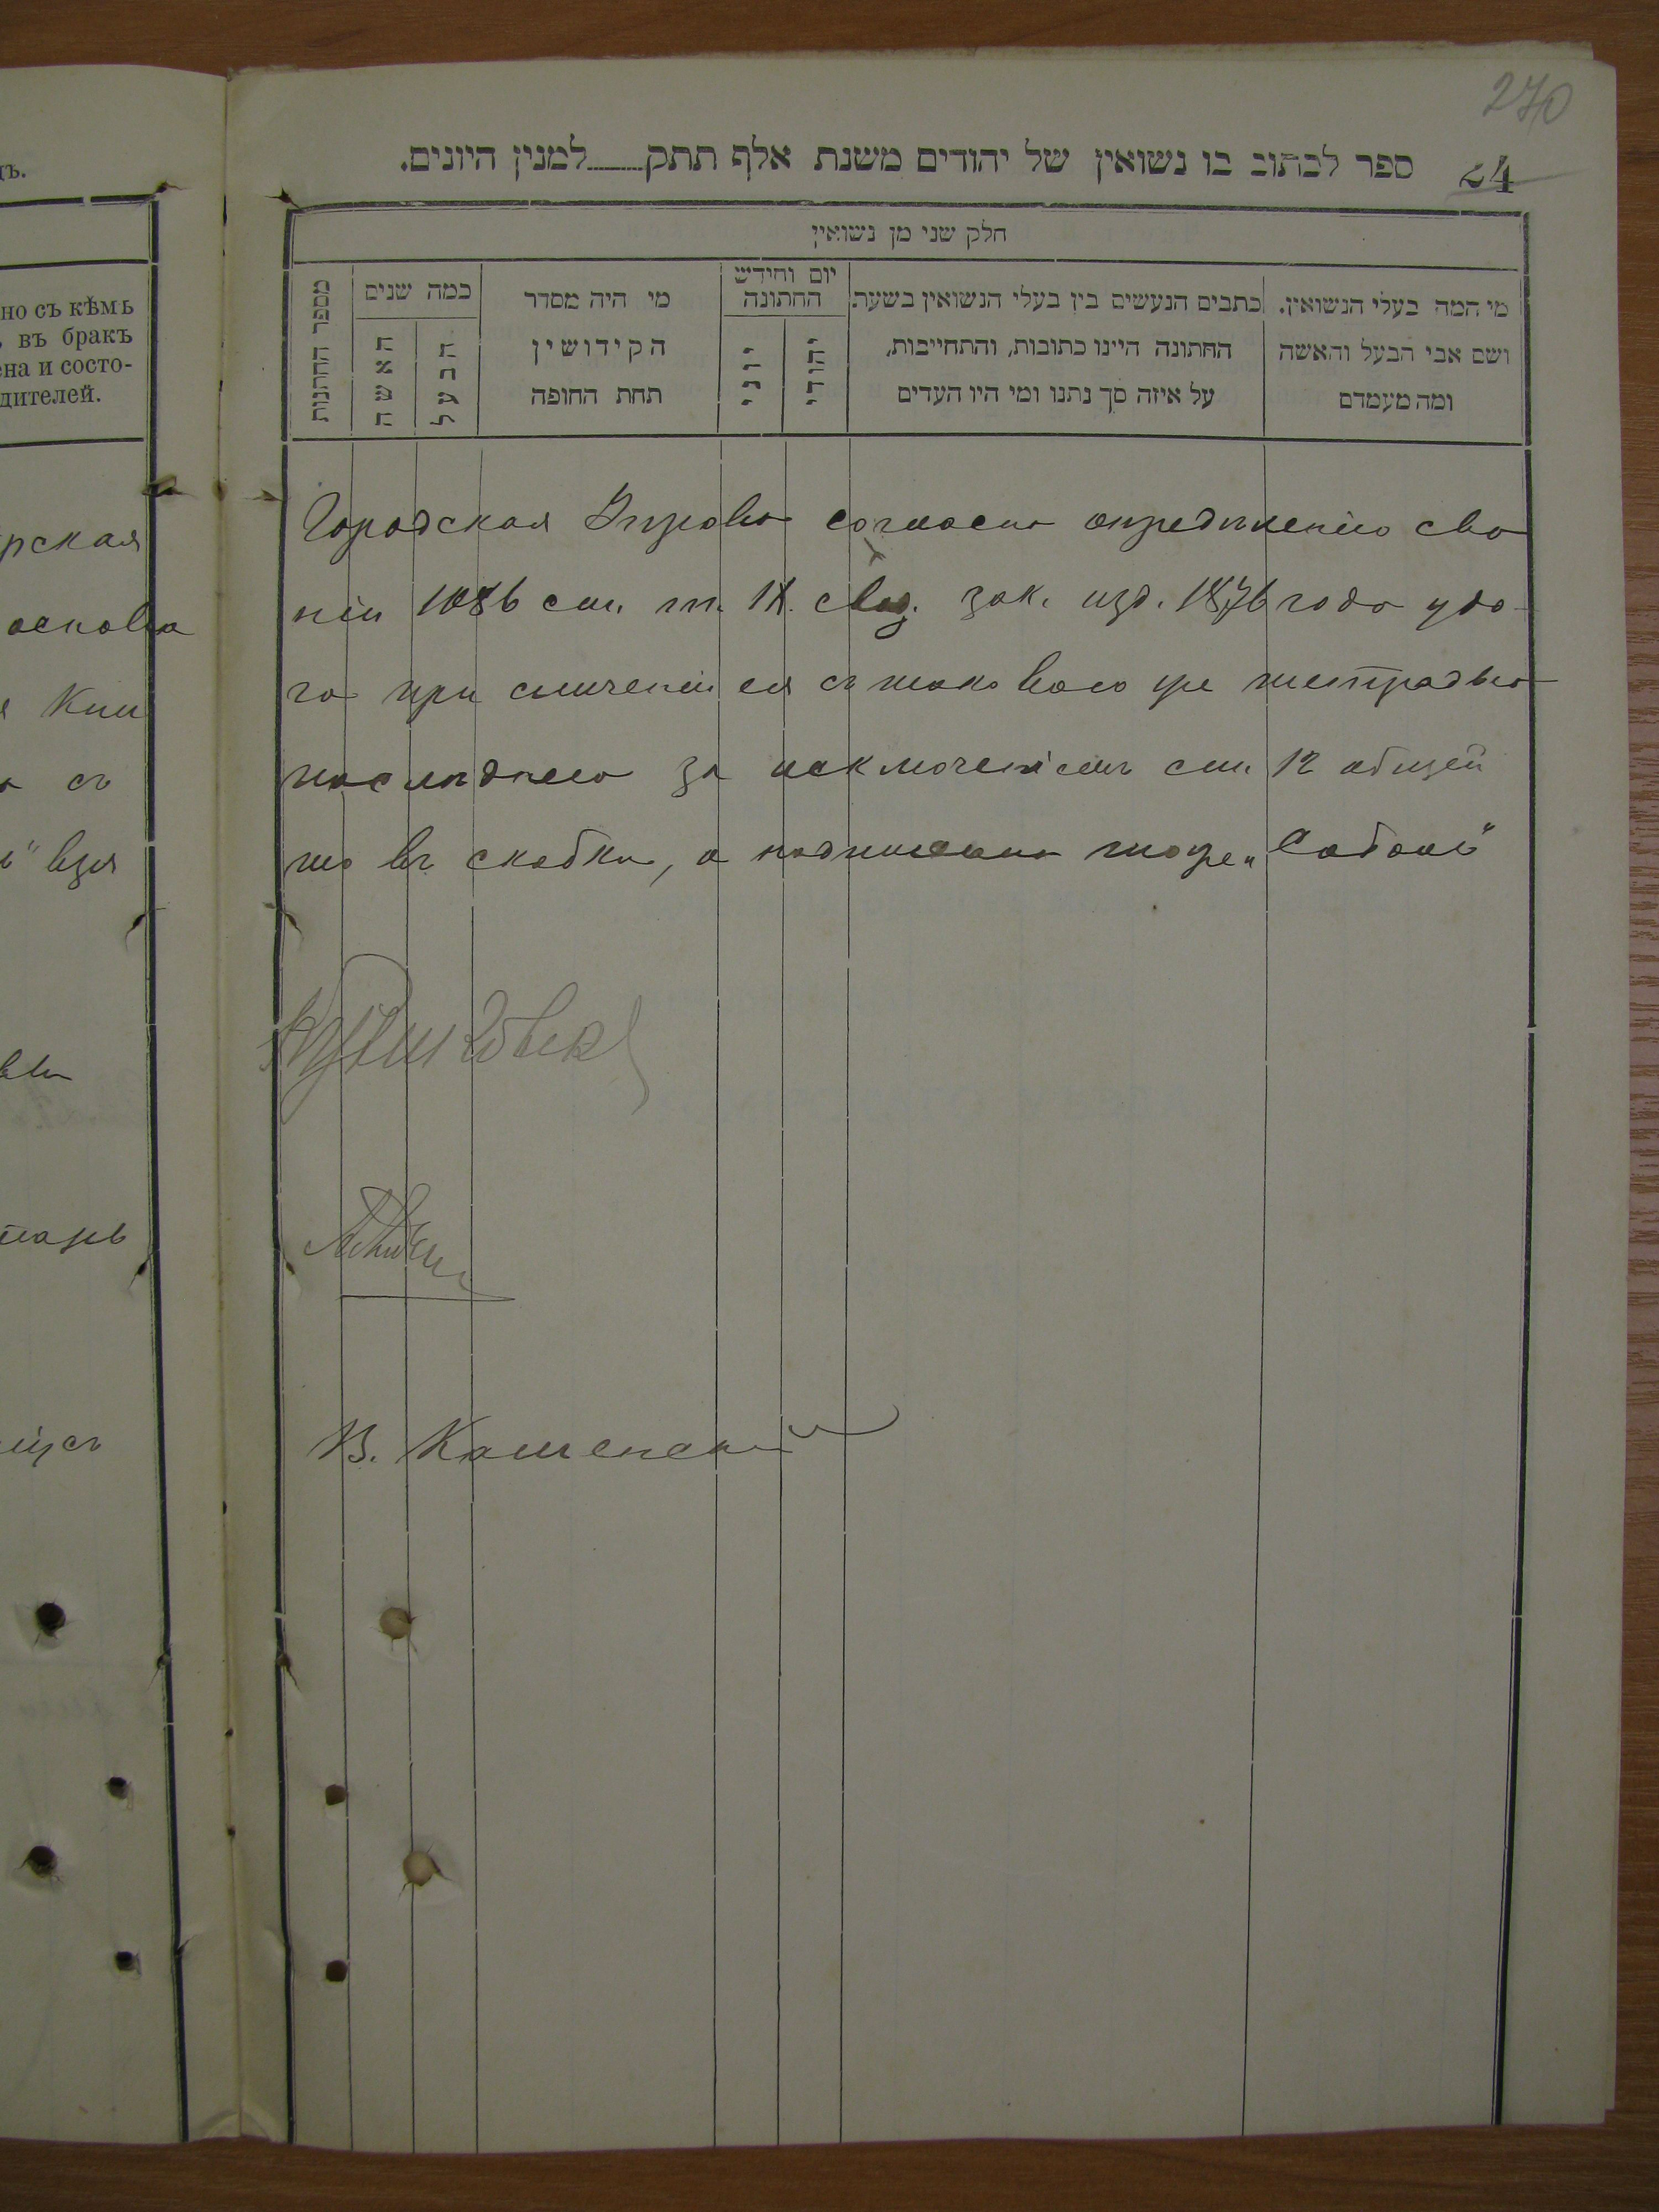 270
24
ספר לכתוב בו נשואין של יהודים משנת אלף תתק......למנין היונים.
חלק שני מן נשואין
מספר החתונות
כמה שנים
האשה
הבעל
מי היה מסדר
הקידושין
תחת החופה
יום וחידש
החתונה
יוני
יהודי
כתבים הנעשים בין בעלי הנשואין בשעת
החתונה היינו כתובות, והתחייבות,
על איזה סך נתנו ומי היו העדים
מי המה בעלי הנשואין.
ושם אבי הבעל והאשה
ומה מעמדם
но съ кѣмъ
въ бракъ
ена и состо-
дителей.
рская
основа
Кни
съ
взя
Городская Управа согласно опредѣленію сво
ніи 1086 ст. т. IX. свод. зак. изд. 1876 года удо
го при сличеніи ея съ таковою же тетрадью
послѣднею за исключеніемъ ст. 12 общей
то въ скобки, а подписано тоже „
В. Каменскій